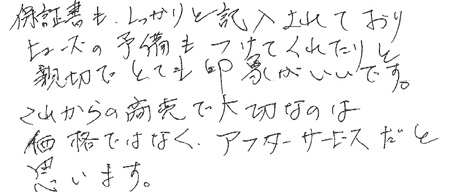 保証書も、しっかりと記入されており
ヒューズの予備もつけてくれたりと
親切でとても印象がいいです。
これからの商売で大切なのは
価格ではなく、アフターサービスだと
思います。